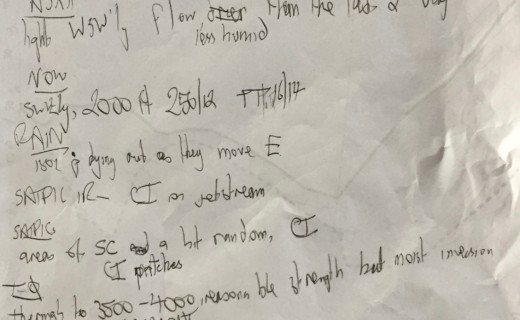 light Wsw'ly flow from the last 2
less humid
NOW
Swly, 2000 ft 250/12 TT 16/14
RAIN
dying out as they move E
SATPIC IR - CI on jetstream
SATPIC
areas of SC a bit random, CI
CI patches
thermals to 3500-4000, reasonable strength but moist inversion